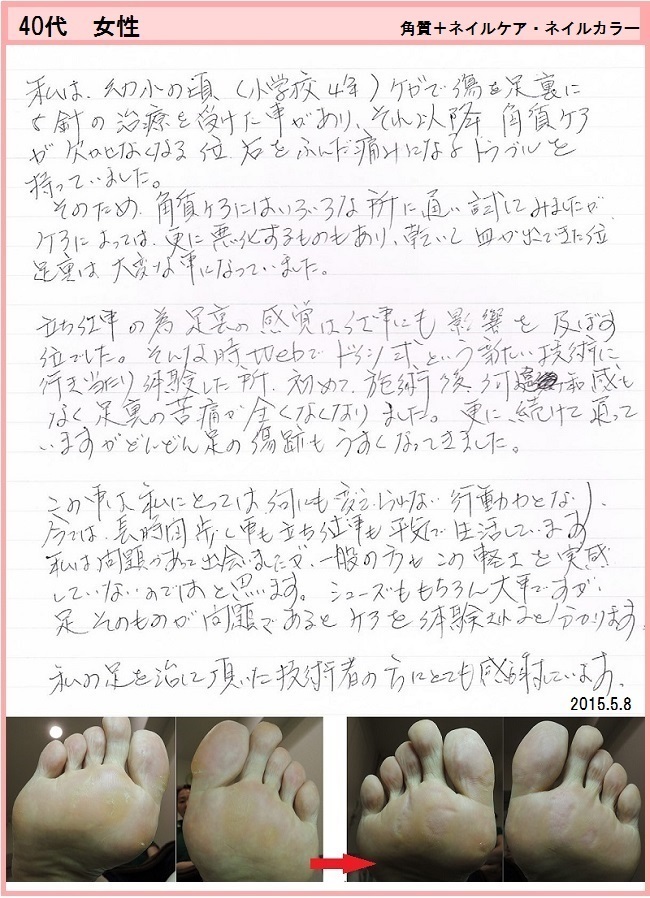 40代 女性
角質+ネイルケア・ネイルカラー
私は、幼小の頃、(小学校4年)ケガで傷を足裏に
5針の治療を受けた事があり、それ以降、角質ケア
が欠かせなくなる位、石をふんだ痛みになるトラブルを
持っていました。
そのため、角質ケアにはいろいろな所に通い試してみましたが
ケアによっては、更に悪化するものもあり、乾いて血が出てきた位
足裏は大変な事になっていました。
立ち仕事の為足裏の感覚は仕事にも影響を及ぼす
位でした。そんな時Webでドイツ式という新たい技術に
行き当たり体験した所、初めて施術後、何 和感も
なく足裏の苦痛が全くなくなりました。更に、続けて通って
いますがどんどん足の傷跡もうすくなってきました。
この事は私にとっては何にも変えられない行動力となり、
今では、長時間歩く事も立ち仕事も平気で生活しています
私は問題があって出会いましたが、一般の方もこの軽さを実感
していないのではと思います。シューズももちろん大事ですが、
足そのものが問題であるとケアを体験すると分かります
私の足を治して頂いた技術者の方にとても感謝しています。
2015.5.8